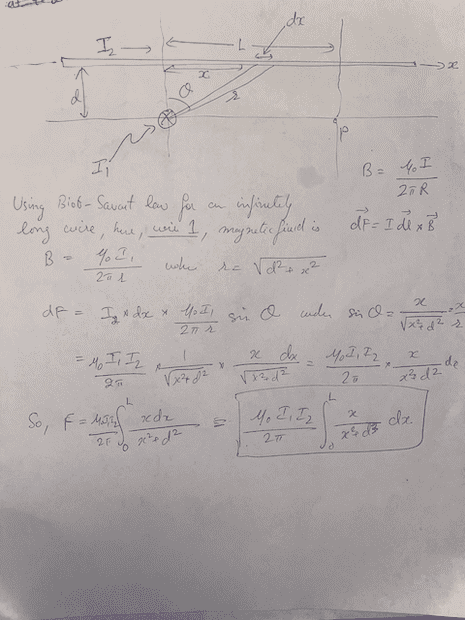 dx
I₂ → L
x → x
d θ r
I₁ P
B = μ₀I / 2πR
Using Biot-Savart law for an infinitely
long wire, here, wire 1, magnetic field is dF⃗ = I dl⃗ × B⃗
B = μ₀I₁ / 2πr where r = √(d² + x²)
dF = I₂ × dx × μ₀I₁ / 2πr sin θ where sin θ = x / √(x² + d²) = x / r
= μ₀I₁I₂ / 2π × 1 / √(x² + d²) × x dx / √(x² + d²) = μ₀I₁I₂ / 2π × x / (x² + d²) dx
So, F = μ₀I₁I₂ / 2π ∫₀ᴸ x dx / (x² + d²) = μ₀I₁I₂ / 2π ∫₀ᴸ x / (x² + d²) dx.